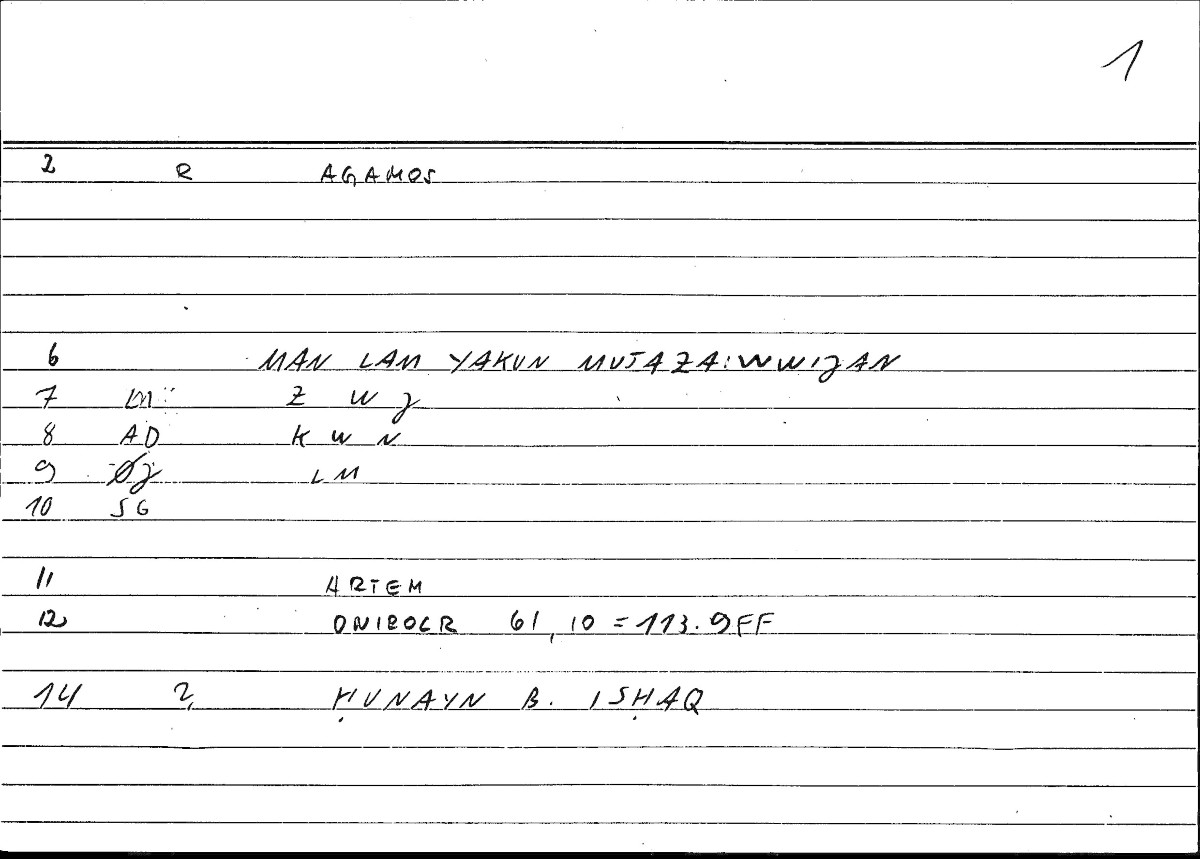 1
2 R AGAMOS
6 MAN LAM YAKUN MUTAZA:WWIJAN
7 LM: Z W J
8 AD K W N
9 LM
10 SG
11 ARTEM
12 ONIROCR 61,10 = 113.9FF
14 2, ḤUNAYN B. ISḤAQ